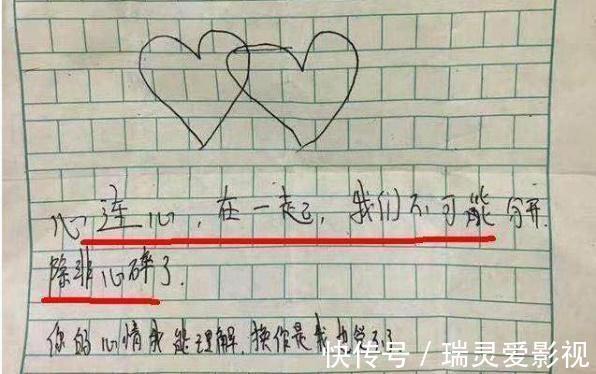 心连心，在一起，我们不可能分开.
除非心碎了.
你的心情我能理解.换作是我也
快传号／瑞灵爱影视